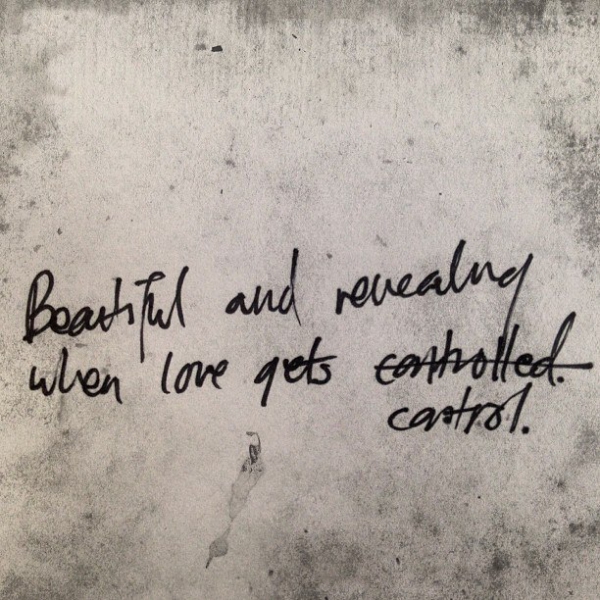 Beautiful and revealing
when love gets controlled.
control.